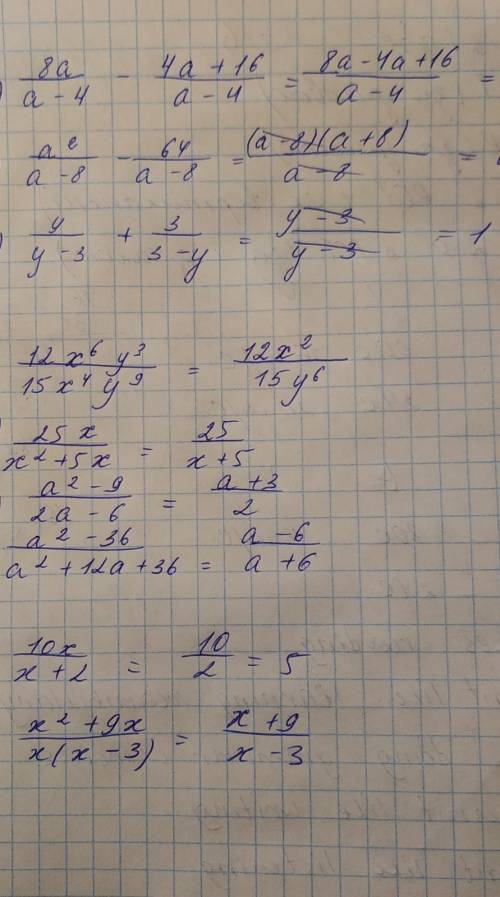 8a/(a - 4) - (4a + 16)/(a - 4) = (8a - 4a + 16)/(a - 4) =
a²/(a - 8) - 64/(a - 8) = (a - 8)(a + 8)/(a - 8) =
y/(y - 3) + 3/(3 - y) = (y - 3)/(y - 3) = 1
12x⁶y³/15x⁴y⁹ = 12x²/15y⁶
25x/(x² + 5x) = 25/(x + 5)
(a² - 9)/(2a - 6) = (a + 3)/2
(a² - 36)/(a² + 12a + 36) = (a - 6)/(a + 6)
10x/(x + 2) = 10/2 = 5
(x² + 9x)/(x(x - 3)) = (x + 9)/(x - 3)